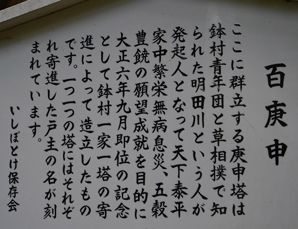 百庚申
ここに群立する庚申塔は
鉢村青年団と草相撲で知
られた明田川という人が
発起人となって天下泰平
家中繁栄無病息災、五穀
豊饒の願望成就を目的に
大正六年九月即位の記念
として鉢村一家一塔の寄
進によって造立したもの
です。一つ一つの塔にはそれぞ
れ寄進した戸主の名が刻
まれています。
いしぼとけ保存会